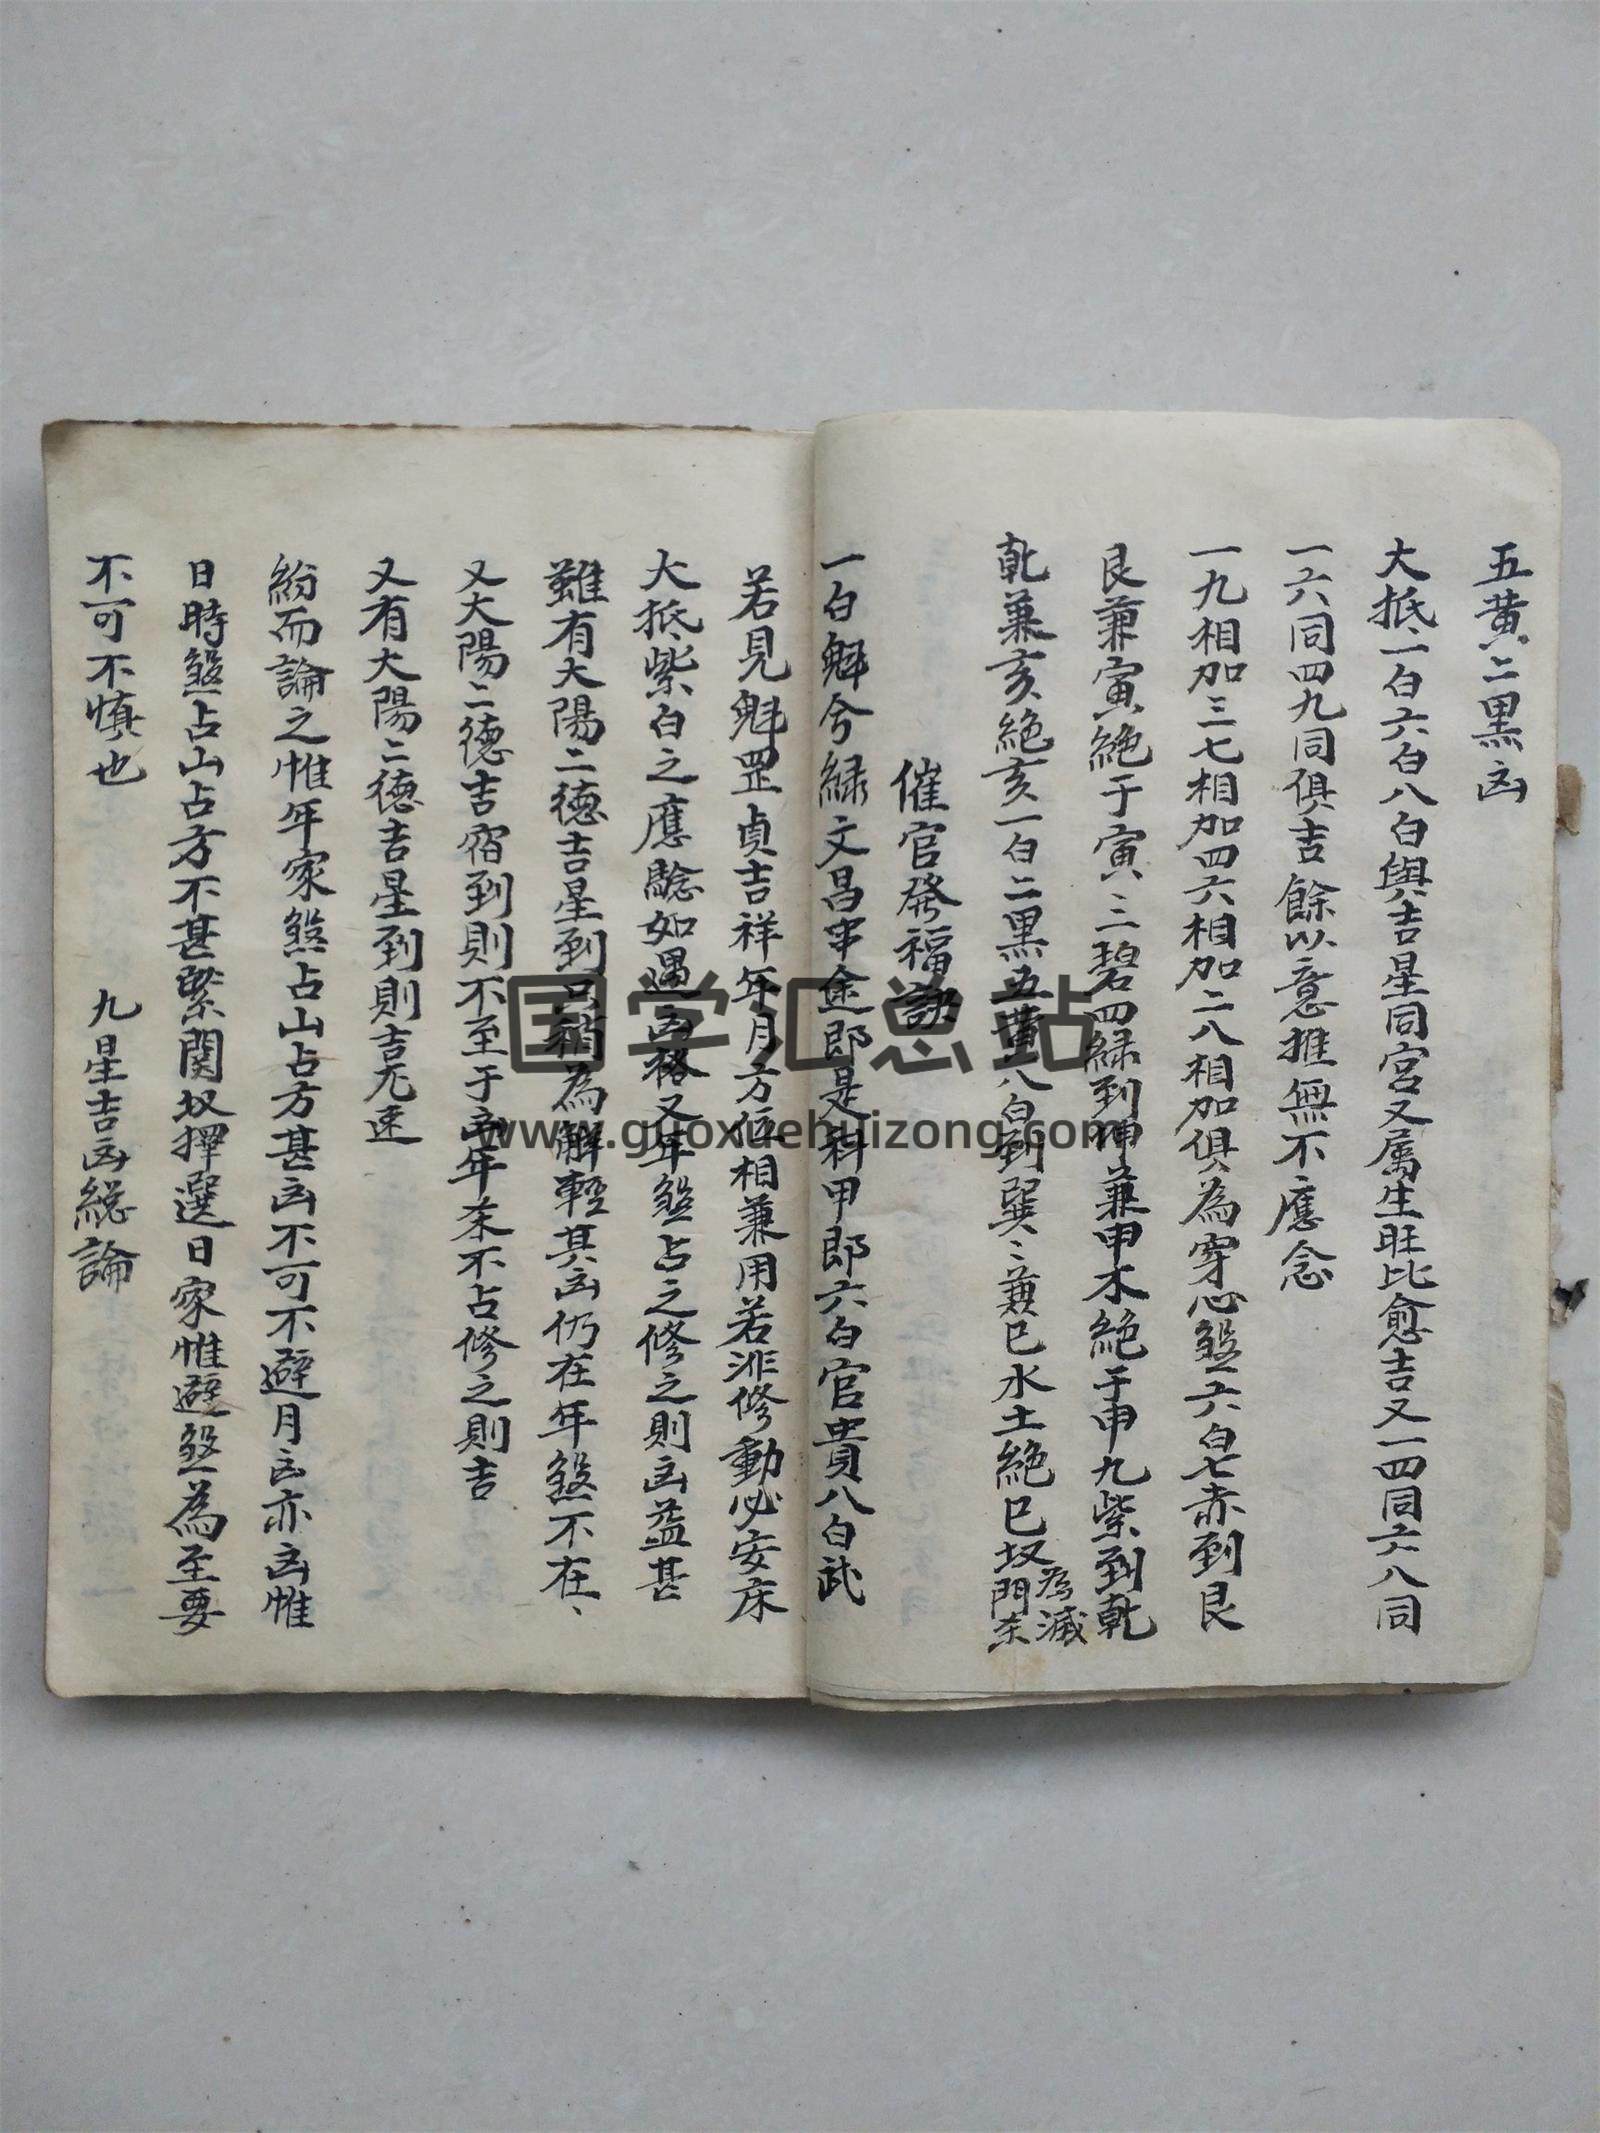 五黄二黑凶
大抵一白六白八白與吉星同宮又属生旺比愈吉又一四同六八同
一六同四九同俱吉餘以意推無不應念
一九相加三七相加四六相加二八相加俱為穿心煞六白七赤到艮
艮兼寅絶于寅三碧四緑到坤兼申木絶于申九紫到乾
乾兼亥絶亥一白二黑五黄八白到巽〻兼巳水土絶巳故為滅門杀
催官發福訣
一白魁兮緑文昌串途郎是科甲郎六白官貴八白武
若見魁罡貞吉祥年月方位相兼用若非修動必安床
大抵紫白之應驗如遇凶格又年煞占之修之則凶益甚
雖有太陽二德吉星到只稍為解輕其凶仍在年煞不在、
又大陽二德吉宿到則不至于年杀不占修之則吉
又有大陽二德吉星到則吉尤速
紛而論之惟年家煞占山占方甚凶不可不避月家亦凶惟
日時煞占山占方不甚緊関故擇選日家惟避煞為至要
不可不慎也
九星吉凶総論
国学汇总站
www.guoxuehuizong.com